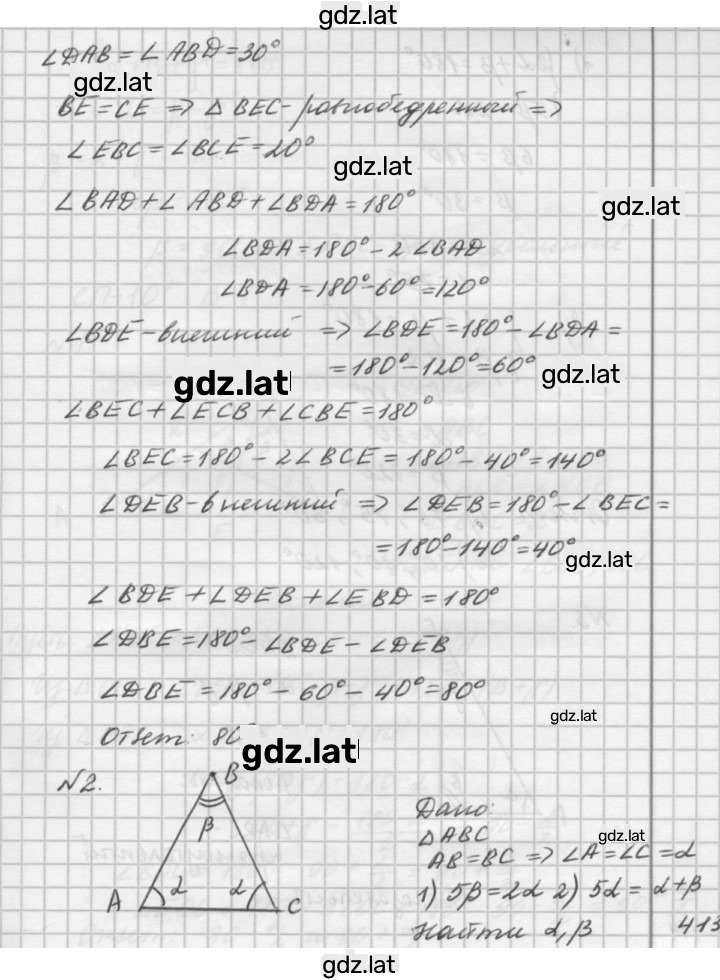 gdz.lat
∠DAB = ∠ABD = 30°
gdz.lat
BE = CE => △BEC - равнобедренный =>
∠EBC = ∠BCE = 20°
gdz.lat
∠BAD + ∠ABD + ∠BDA = 180°
gdz.lat
∠BDA = 180° - 2∠BAD
∠BDA = 180° - 60° = 120°
∠BDE - внешний => ∠BDE = 180° - ∠BDA =
= 180° - 120° = 60°
gdz.lat
gdz.lat
∠BEC + ∠ECB + ∠CBE = 180°
∠BEC = 180° - 2∠BCE = 180° - 40° = 140°
∠DEB - внешний => ∠DEB = 180° - ∠BEC =
= 180° - 140° = 40°
gdz.lat
∠BDE + ∠DEB + ∠EBD = 180°
∠DBE = 180° - ∠BDE - ∠DEB
∠DBE = 180° - 60° - 40° = 80°
gdz.lat
Ответ: 80°
gdz.lat
№2.
B
β
A α α C
Дано:
△ABC
gdz.lat
AB = BC => ∠A = ∠C = α
1) 5β = 2α 2) 5α = α + β
Найти α, β
413
gdz.lat